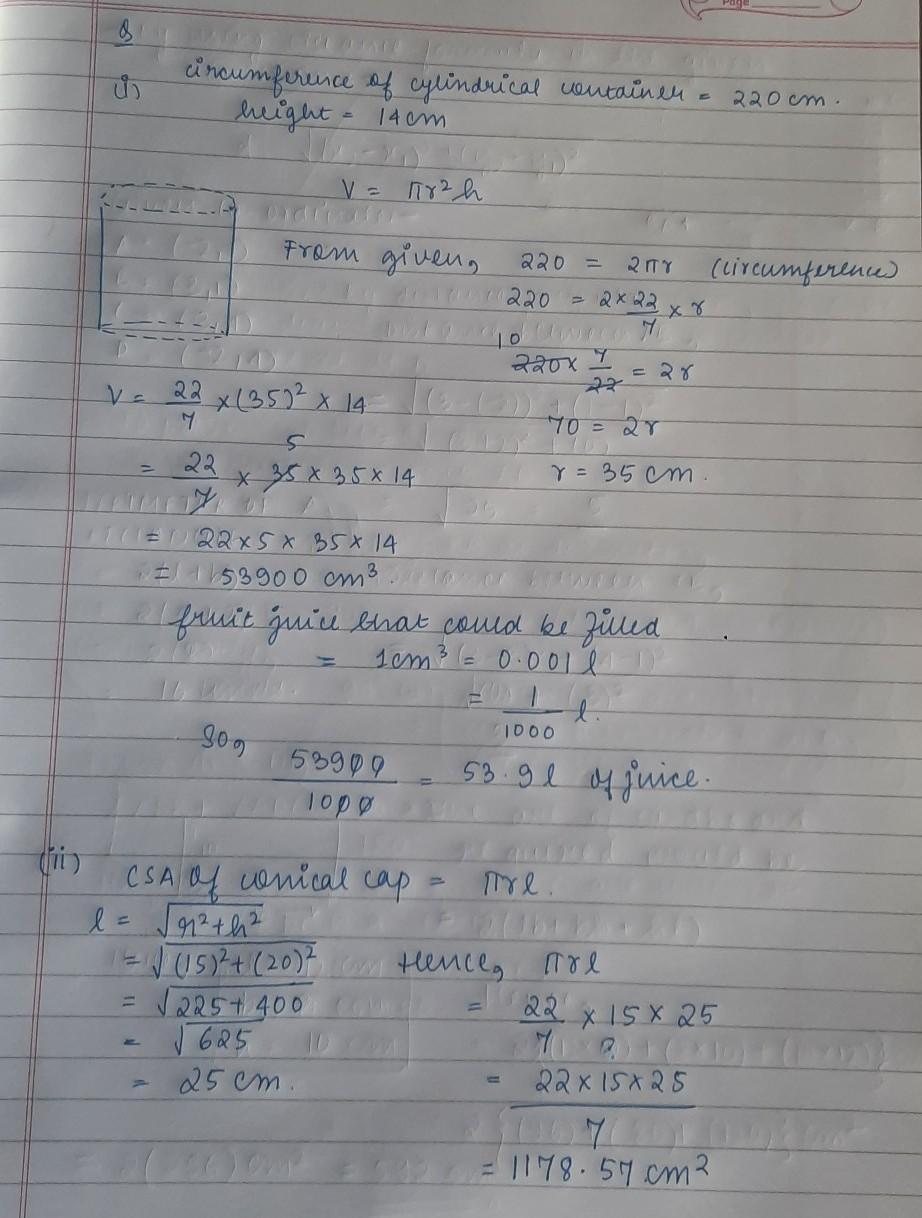 Page
Q
(i) circumference of cylindrical container = 220 cm.
height = 14 cm
V = πr²h
From given, 220 = 2πr (circumference)
220 = 2 × 22/7 × r
10
220 × 7/22 = 2r
70 = 2r
r = 35 cm.
V = 22/7 × (35)² × 14
5
= 22/7 × 35 × 35 × 14
= 22 × 5 × 35 × 14
= 53900 cm³.
fruit juice that could be filled
= 1cm³ = 0.001 l
= 1/1000 l.
So, 53900/1000 = 53.9 l of juice.
(ii) CSA of conical cap = πrl.
l = √r²+h²
= √(15)²+(20)²
= √225+400
= √625
= 25 cm.
Hence, πrl
= 22/7 × 15 × 25
= 22×15×25/7
= 1178.57 cm²